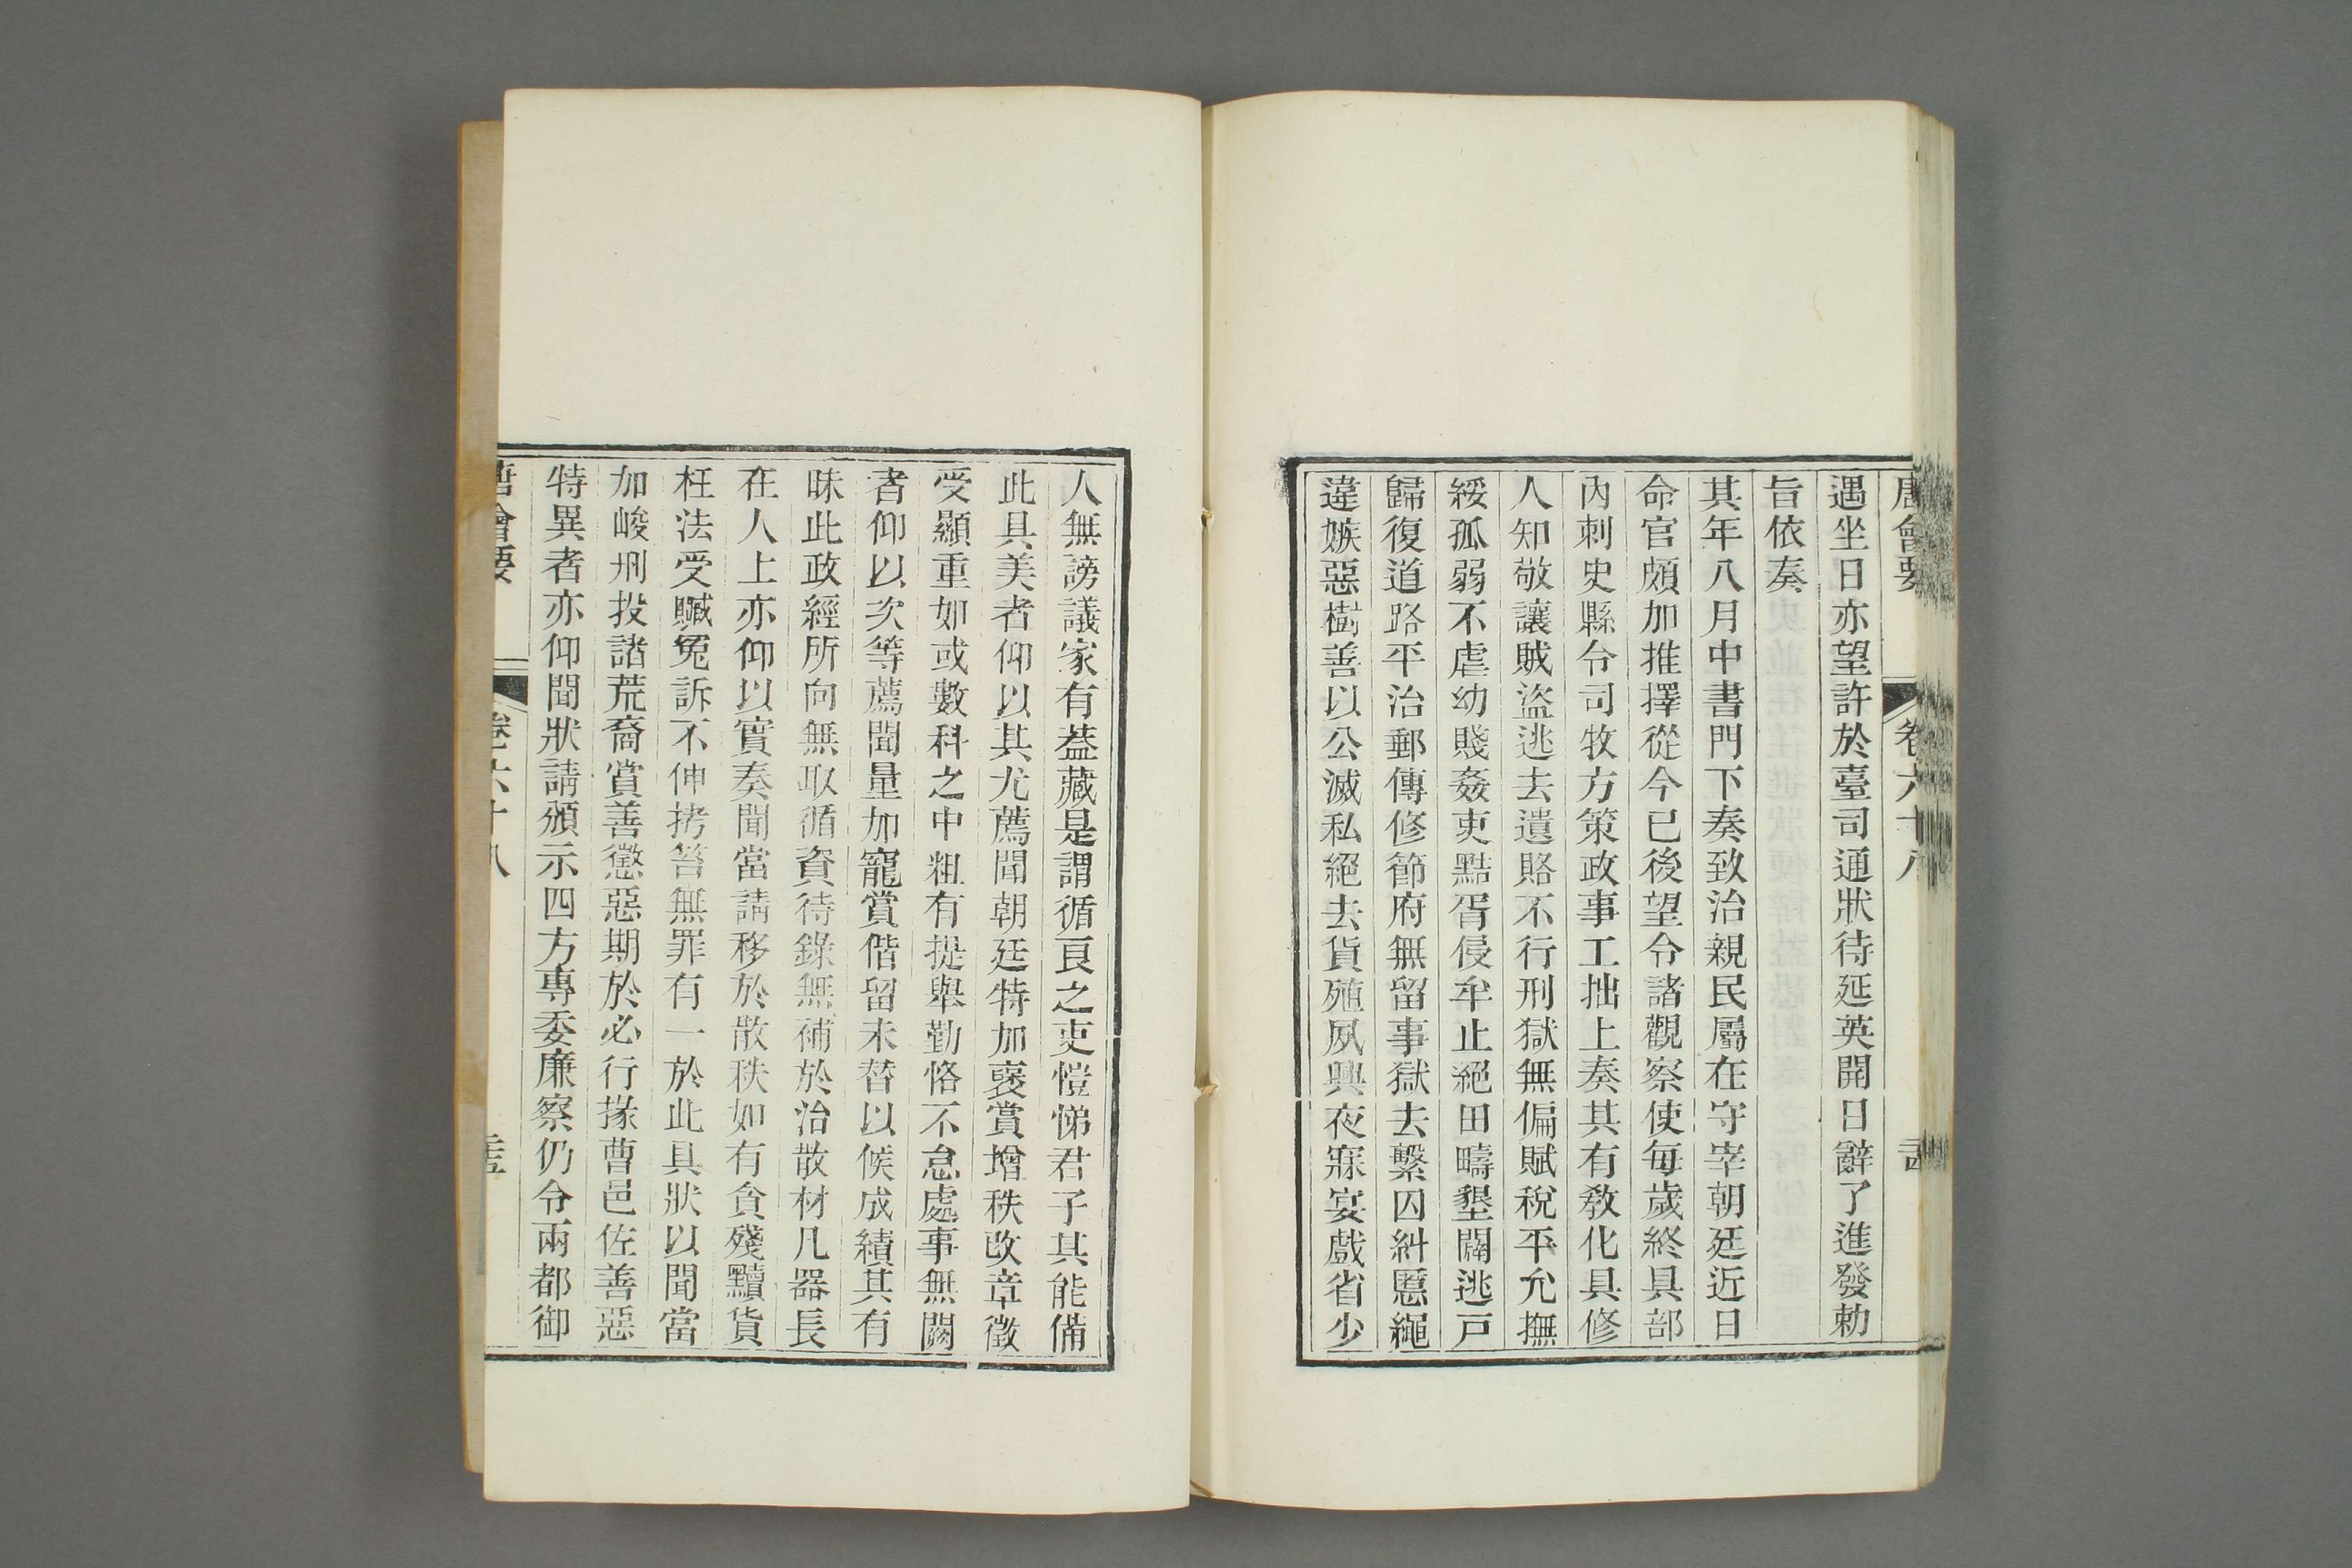 唐會要 卷六十八
遇坐日亦望許於臺司通狀待延英開日辭了進發勅
旨依奏
其年八月中書門下奏致治親民屬在守宰朝廷近日
命官頗加推擇從今已後望令諸觀察使每歲終具部
內刺史縣令司牧方策政事工拙上奏其有敎化具修
人知敬讓賊盜逃去遺賂不行刑獄無偏賦稅平允撫
綏孤弱不虐幼賤姦吏黠胥侵牟止絕田疇墾闢逃戸
歸復道路平治郵傳修節府無留事獄去繫囚糾慝繩
違嫉惡樹善以公滅私絕去貨殖夙興夜寐宴戲省少
人無謗議家有葢藏是謂循良之吏愷悌君子其能備
此具美者仰以其尤薦聞朝廷特加襃賞增秩改章徵
受顯重如或數科之中粗有提舉勤恪不怠處事無闕
者仰以次等薦聞量加寵賞偕留未替以候成績其有
昧此政經所向無取循資待錄無補於治散材凡器長
在人上亦仰以實奏聞當請移於散秩如有貪殘黷貨
枉法受贓冤訴不伸拷笞無罪有一於此具狀以聞當
加峻刑投諸荒裔賞善懲惡期於必行掾曹邑佐善惡
特異者亦仰聞狀請頒示四方專委廉察仍令兩都御
唐會要 卷六十八